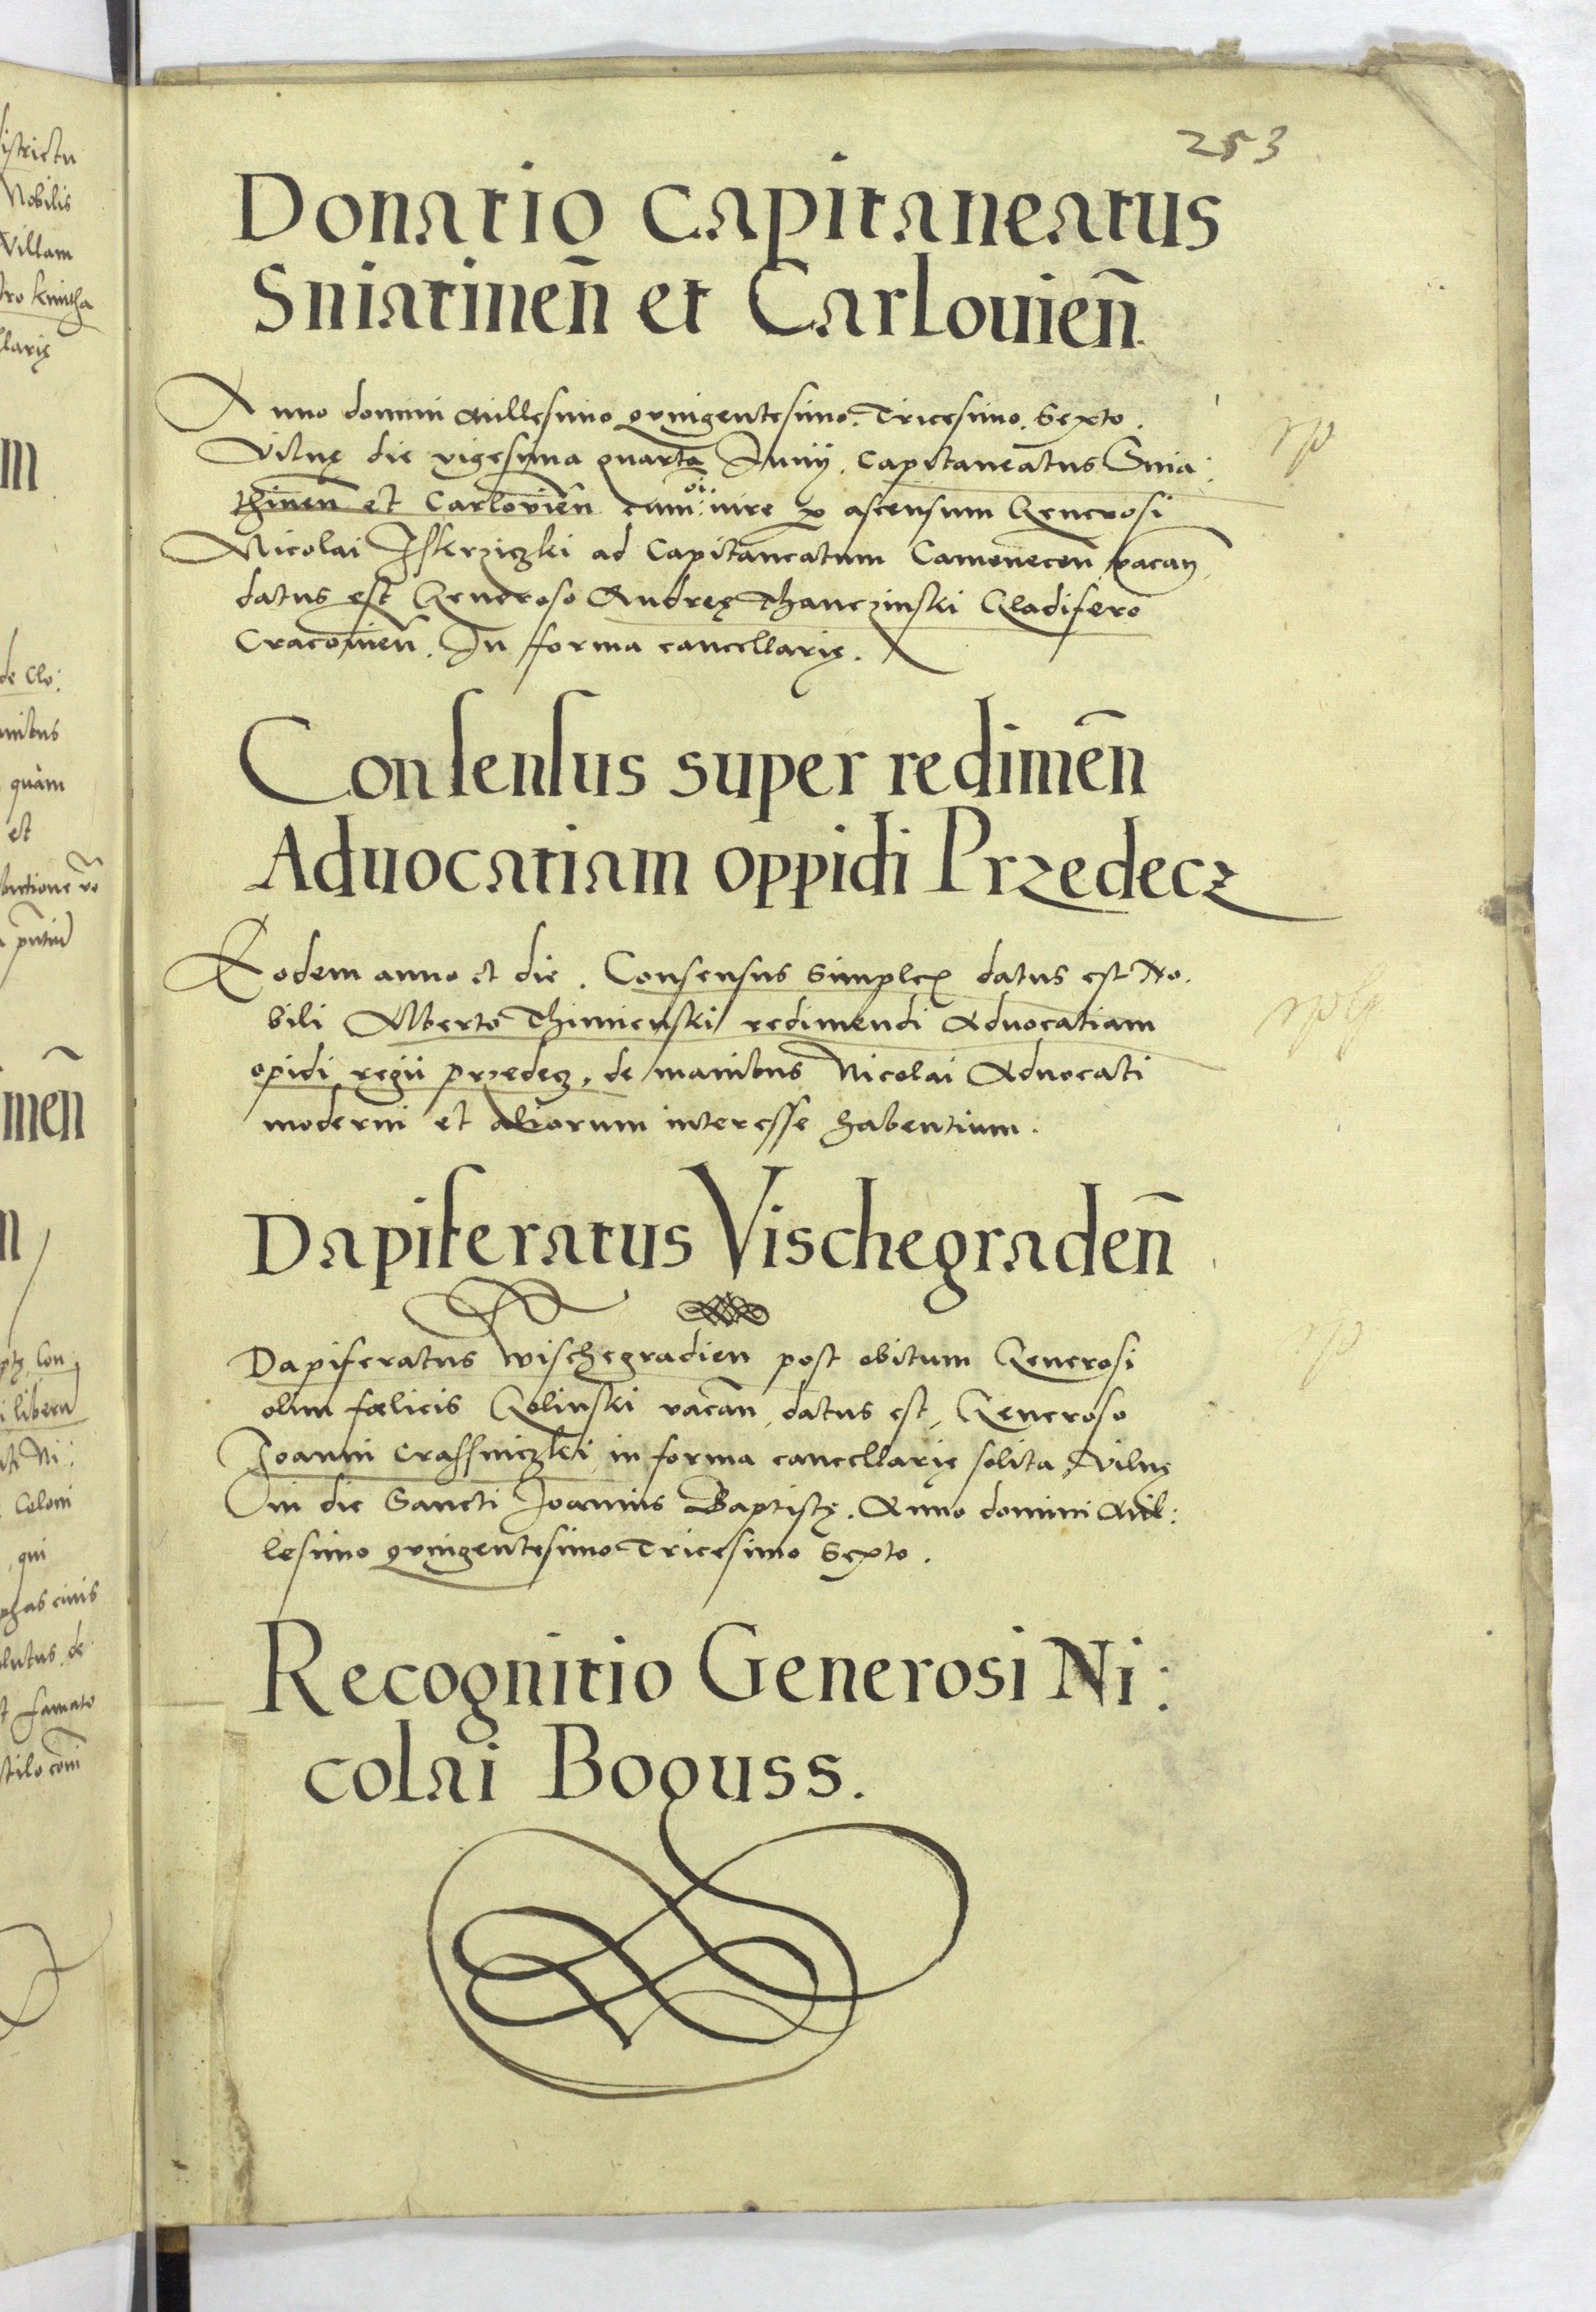 253
Donatio Capitaneatus
Sniatinen̄ et Carlouien̄
Anno domini Millesimo quingentesimo. Tricesimo. Sexto.
Vilnę die vigesima quarta Junij. Capitaneatus Snia:
thinen̄ et Carlovien̄ cum oi. iure per ascensum Generosi
Nicolai Iskrziczki ad Capitaneatum Camenecen̄ vacan̄
datus est Generoso Andreę Thanczinski Gladifero
Cracovien̄. In forma cancellarię.
Consensus super redimen̄
Aduocatiam oppidi Przedecz
Eodem anno et die. Consensus simplex datus est No.
bili Alberto Thimienski redimendi Aduocatiam
opidi regii przedecz, de manibus Nicolai Aduocati
moderni et aliorum interesse habentium.
Dapiferatus Vischegraden̄
Dapiferatus Wischegradien post obitum Generosi
olim fœlicis Golinski vacan̄, datus est, Generoso
Joanni Crassniczki in forma cancellarię solita, Vilnę
in die Sancti Joannis Baptistę. Anno domini Mil:
lesimo quingentesimo Tricesimo Sexto.
Recognitio Generosi Ni:
colai Boguss.